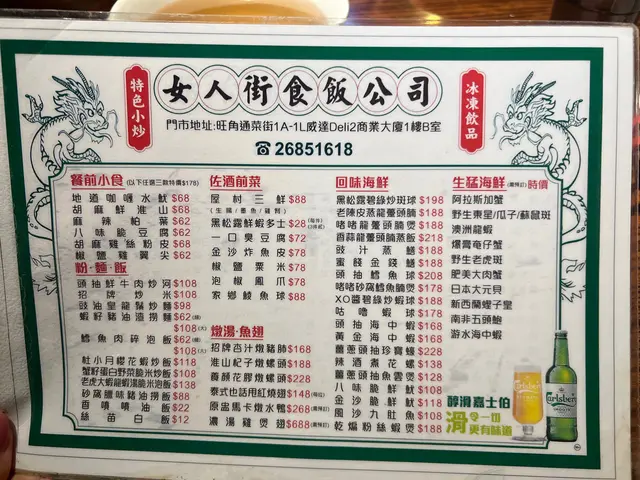 特色小炒
女人街食飯公司
冰凍飲品
門市地址:旺角通菜街1A-1L威達Deli2商業大廈1樓B室
☎26851618
餐前小食 (以下任選三款特價$178)
地道咖喱水魷 $68
胡麻鮮淮山 $68
麻辣柏葉 $62
八味脆豆腐 $62
胡麻雞絲粉皮 $68
椒鹽雞翼尖 $62
粉·麵·飯
頭抽鮮牛肉炒河 $108
招牌炒米 $108
豉油皇龍鬚炒麵 $98
蝦籽豬油渣撈麵 $62
$108(大)
鱈魚肉碎泡飯 $62
$108(大)
杜小月櫻花蝦炒飯 $118
蟹籽蛋白野菜脆米炒飯 $108
老虎大蝦龍蝦湯脆米泡飯 $138
砂窩臘味豬油撈飯 $88
香噴噴油飯 $22
絲苗白飯 $12
佐酒前菜
屋村三鮮 $88
黑松露鮮蝦多士 $28
一口臭豆腐 $72
金沙炸魚皮 $78
椒鹽粟米 $78
泡椒鳳爪 $78
家鄉鯪魚球 $88
燉湯·魚翅
招牌杏汁燉豬肺 $168
淮山杞子燉螺頭 $188
養顏花膠燉螺頭 $228
泰式也話用紅燒翅 $148
原盅馬卡燉水鴨 $268
濃湯雞煲翅 $688
回味海鮮
黑松露碧綠炒斑球 $198
老陳皮蒸龍躉頭腩 $188
啫啫龍躉頭腩煲 $188
香蒜龍躉頭腩蒸飯 $218
豉汁蒸鱔 $188
蜜餞金錢鱔 $188
頭抽鱈魚球 $208
啫啫砂窩鱈魚腩煲 $178
XO醬碧綠炒蝦球 $188
咕嚕蝦球 $178
頭抽海中蝦 $168
黃金海中蝦 $168
薑蔥頭抽珍寶蠔 $228
辣酒煮花螺 $138
薑蔥頭抽魚雲煲 $128
八味脆鮮魷 $108
金沙脆鮮魷 $118
風沙九肚魚 $108
乾煏粉絲蝦煲 $188
生猛海鮮 (需預訂) 時價
阿拉斯加蟹
野生東星/瓜子/蘇鼠斑
澳洲龍蝦
爆膏奄仔蟹
野生老虎斑
肥美大肉蟹
日本大元貝
新西蘭蟶子皇
南非五頭鮑
游水海中蝦
醇滑嘉士伯
滑令一切更有味道
Carlsberg